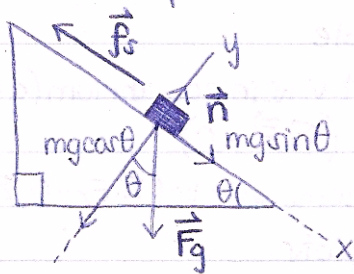 f⃗s
y
n⃗
mgcosθ
mgsinθ
θ
θ
F⃗g
x